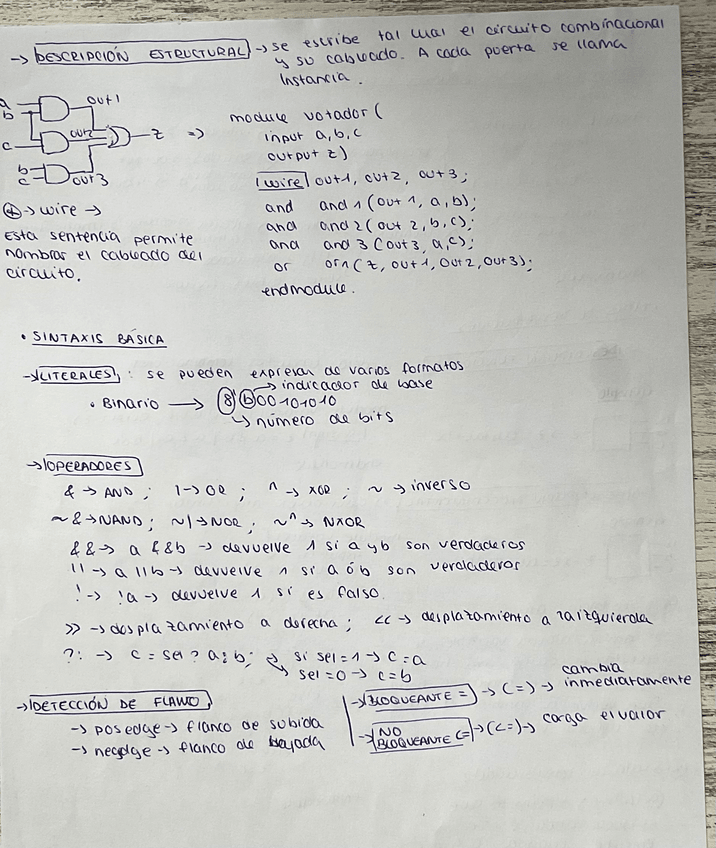 -> DESCRIPCIÓN ESTRUCTURAL -> se escribe tal cual el circuito combinacional
y su cableado. A cada puerta se llama
Instancia.
a
b
c
b
c
out1
out2
out3
z =>
module votador (
input a,b,c
output z)
wire out1, out2, out3;
and and1 (out1, a, b);
and and2 (out2, b, c);
and and3 (out3, a, c);
or or1 (z, out1, out2, out3);
endmodule.
-> wire ->
Esta sentencia permite
nombrar el cableado del
circuito.
• SINTAXIS BÁSICA
-> LITERALES: se pueden expresar de varios formatos
-> indicador de base
• Binario -> 8'b00101010
-> número de bits
-> OPERADORES
& -> AND; | -> OR; ^ -> XOR; ~ -> inverso
~& -> NAND; ~| -> NOR; ~^ -> NXOR
&& -> a &&b -> devuelve 1 si a y b son verdaderos
|| -> a ||b -> devuelve 1 si a ó b son verdaderos
! -> !a -> devuelve 1 si es falso.
>> -> desplazamiento a derecha; << -> desplazamiento a la izquierda
?: -> c = sel ? a : b; -> si sel=1 -> c=a
-> sel=0 -> c=b
-> DETECCIÓN DE FLANCO
-> posedge -> flanco de subida
-> negedge -> flanco de bajada
-> BLOQUEANTE = -> (=) -> cambia
inmediatamente
-> NO
BLOQUEANTE <= -> (<=) -> carga el valor